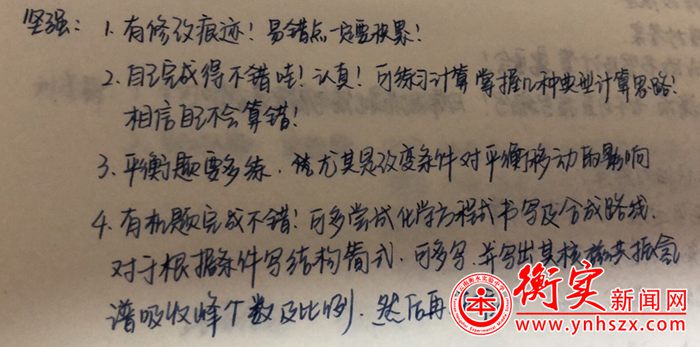 坚强：1. 有修改痕迹！易错点一定要积累！
2. 自己完成得不错哇！认真！可练习计算掌握几种典型计算思路！
相信自己不会算错！
3. 平衡题要多练．尤其是改变条件对平衡移动的影响
4. 有机题完成不错！可多尝试化学方程式书写及合成路线．
对于根据条件写结构简式．可多写．并写出其核磁共振氢
谱吸收峰个数及比例．然后再
衡实新闻网
www.ynhszx.com